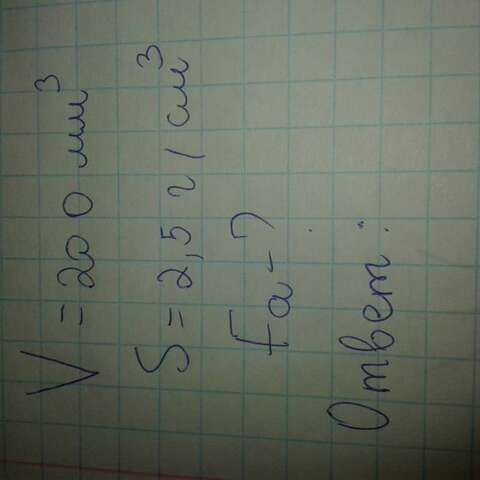 V = 200 мм³
S = 2,5 г/см³
Fa - ?
Ответ: